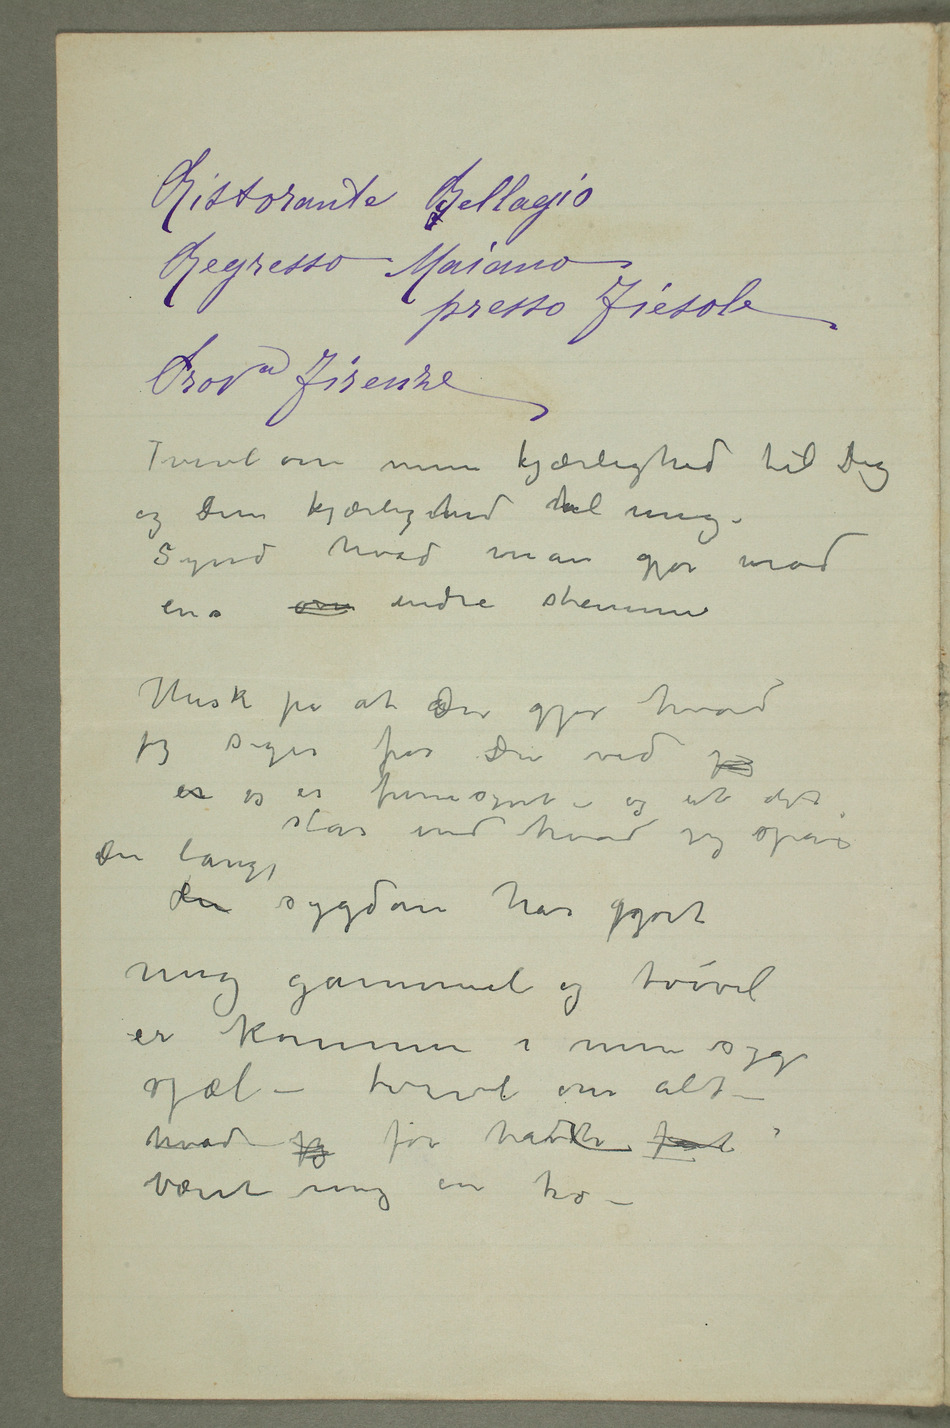 Ristorante Bellagio
Regresso Maiano
presso Fiesole
Prov.a Firenze
Tvivl om min kjærlighed til Dig
og Din kjærlighed til mig –
Synd hvad man gjør mod
ens om indre stemme
Husk på at Du gjør hvad
jeg siger for Du ved jeg
er og er fremsynt – og at det
står ind hvad jeg spår
Den lange
den sygdom har gjort
mig gammel og tvivl
er kommen i min syge
sjæl – tvivl om alt –
hvad jeg før havde
været mig en tro –